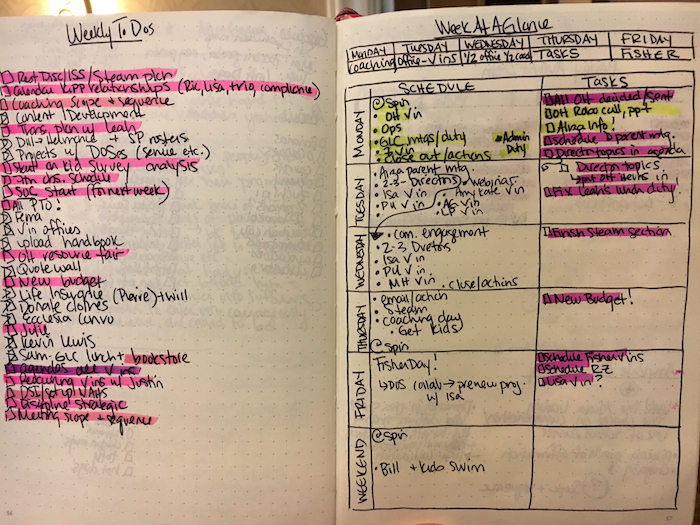 Weekly To Dos
Root Disc/ISS/Steam plan
Calendar KIPP relationships (Ric, Lisa, trio, compliance)
Coaching Scope + sequence
Content / Development
Tiors plan w/ Leah
+ SP rosters
Projects w/ DOSOs (service etc.)
Start on Kid Survey analysis
obs. schedule
SOC Start (for next week)
All PTO!
Fema
Vin offies
Upload handbook
OH resource fair
Quote wall
New budget
Life Insurance (Pierre) + will
Donate clothes
Ecclesia convo
Julie
Kevin Lewis
Sam-GLC lunch + bookstore
agendas all v ins
Recurring Vins w/ Justin
DSI/setup/VAHS
Discipline Strategic
Meeting scope + sequence
56
Week At A Glance
MONDAY TUESDAY WEDNESDAY THURSDAY FRIDAY
coaching office-vins 1/2 office 1/2 coach TASKS FISHER
SCHEDULE TASKS
MONDAY
@spin
OH Vin
Ops
GLC mtgs/duty
Admin Duty
close out/actions
All OH decided/sent
OH Robo call, ppt
Aliza Info!
Schedule D parent mtg.
Director topics in agenda
TUESDAY
Aliza parent mtg.
2-3 Directors
webinar
Isa Vin
Amy Kate Vin
PU Vin
AG Vin
LP Vin
Director topics
put OH needs in
Fix Leah's lunch duty!
WEDNESDAY
com. engagement
2-3 Directors
Isa Vin
PU Vin
MH Vin
close/actions
Finish Steam section
THURSDAY
email/action
Steam
coaching day
Get Kids
@spin
New Budget!
FRIDAY
Fisher Day!
DOS collab → preview proj. w/ Isa
Schedule Fisher Vins
Schedule RZ
Lisa Vin?
WEEKEND
@spin
Bill + kids swim
57